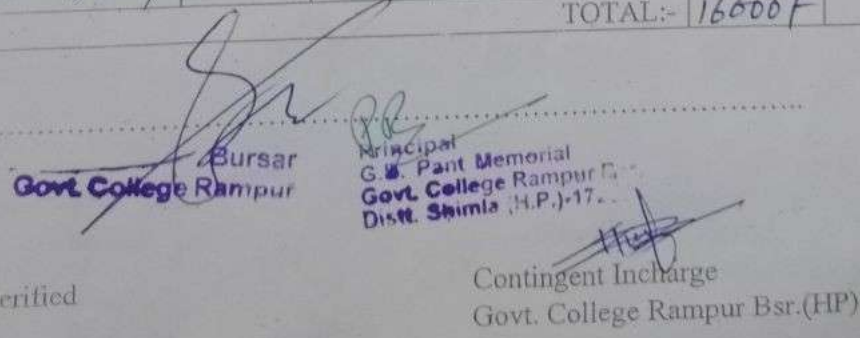 TOTAL:- 16000/-
Bursar
Govt. College Rampur
Principal
G.B. Pant Memorial
Govt. College Rampur
Distt. Shimla (H.P.)-17
Contingent Incharge
Govt. College Rampur Bsr.(HP)
erified